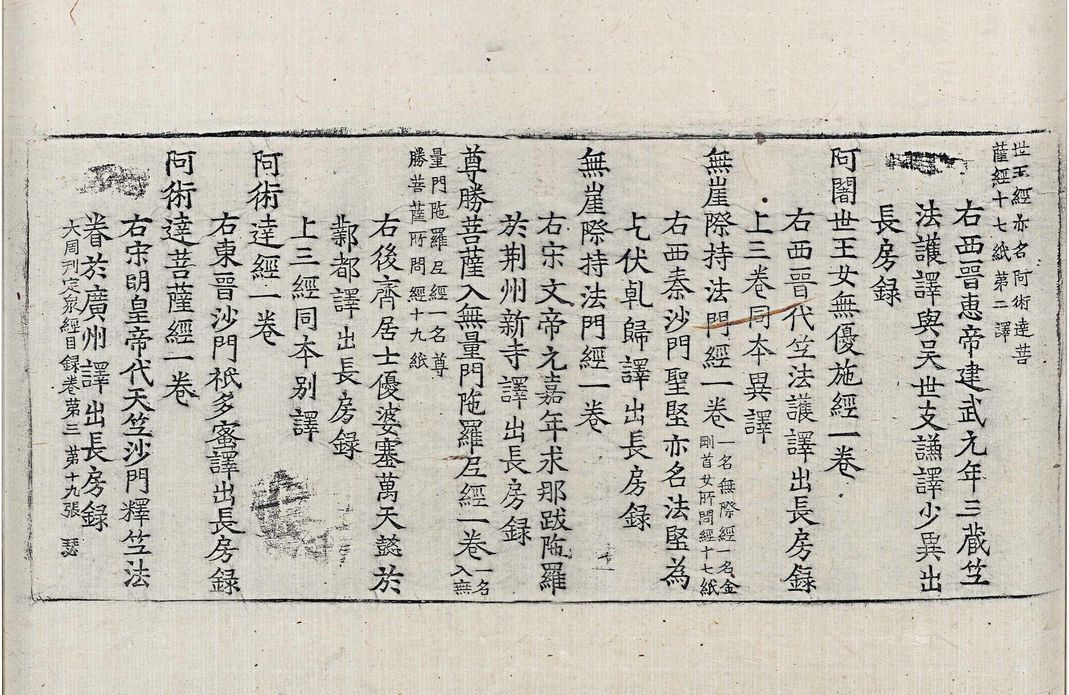 世王經亦名阿術達菩
薩經十七紙第二譯
右西晉惠帝建武元年三藏竺
法護譯與吴世支謙譯少異出
長房録
阿闍世王女無優施經一卷
右西晉代竺法護譯出長房録
上三卷同本異譯
無崖際持法門經一卷一名無際經一名金
剛首女所問經十七紙
右西秦沙門聖堅亦名法堅為
乞伏乹歸譯出長房録
無崖際持法門經一卷
右宋文帝元嘉年求那跋陁羅
於荆州新寺譯出長房録
尊勝菩薩入無量門陁羅尼經一卷一名
入無
量門陁羅尼經一名尊
勝菩薩所問經十九紙
右後齊居士優婆塞萬天懿於
鄴都譯出長房録
上三經同本别譯
阿術達經一卷
右東晉沙門祇多蜜譯出長房録
阿術達菩薩經一卷
右宋明皇帝代天竺沙門釋竺法
眷於廣州譯出長房録
大周刊定衆經目録卷第三 第十九張 瑟